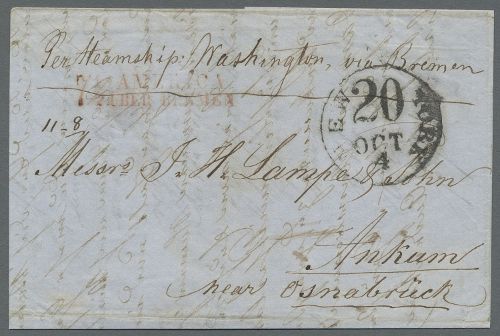 Per Steamship Washington, via Bremen
AMERICA
ÜBER BREMEN
NEW YORK
20
OCT
4
11-8
Messrs J. H. Lampe & Sohn
Ankum
near Osnabrück